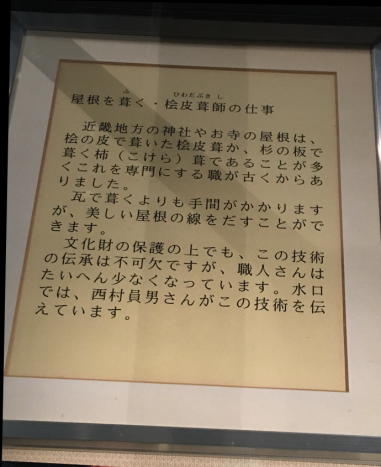 ふ ひわだぶき し
屋根を葺く・桧皮葺師の仕事
近畿地方の神社やお寺の屋根は、
桧の皮で葺いた桧皮葺か、杉の板で
葺く柿(こけら)葺であることが多
くこれを専門にする職が古くからあ
りました。
瓦で葺くよりも手間がかかります
が、美しい屋根の線をだすことがで
きます。
文化財の保護の上でも、この技術
の伝承は不可欠ですが、職人さんは
たいへん少なくなっています。水口
では、西村員男さんがこの技術を伝
えています。